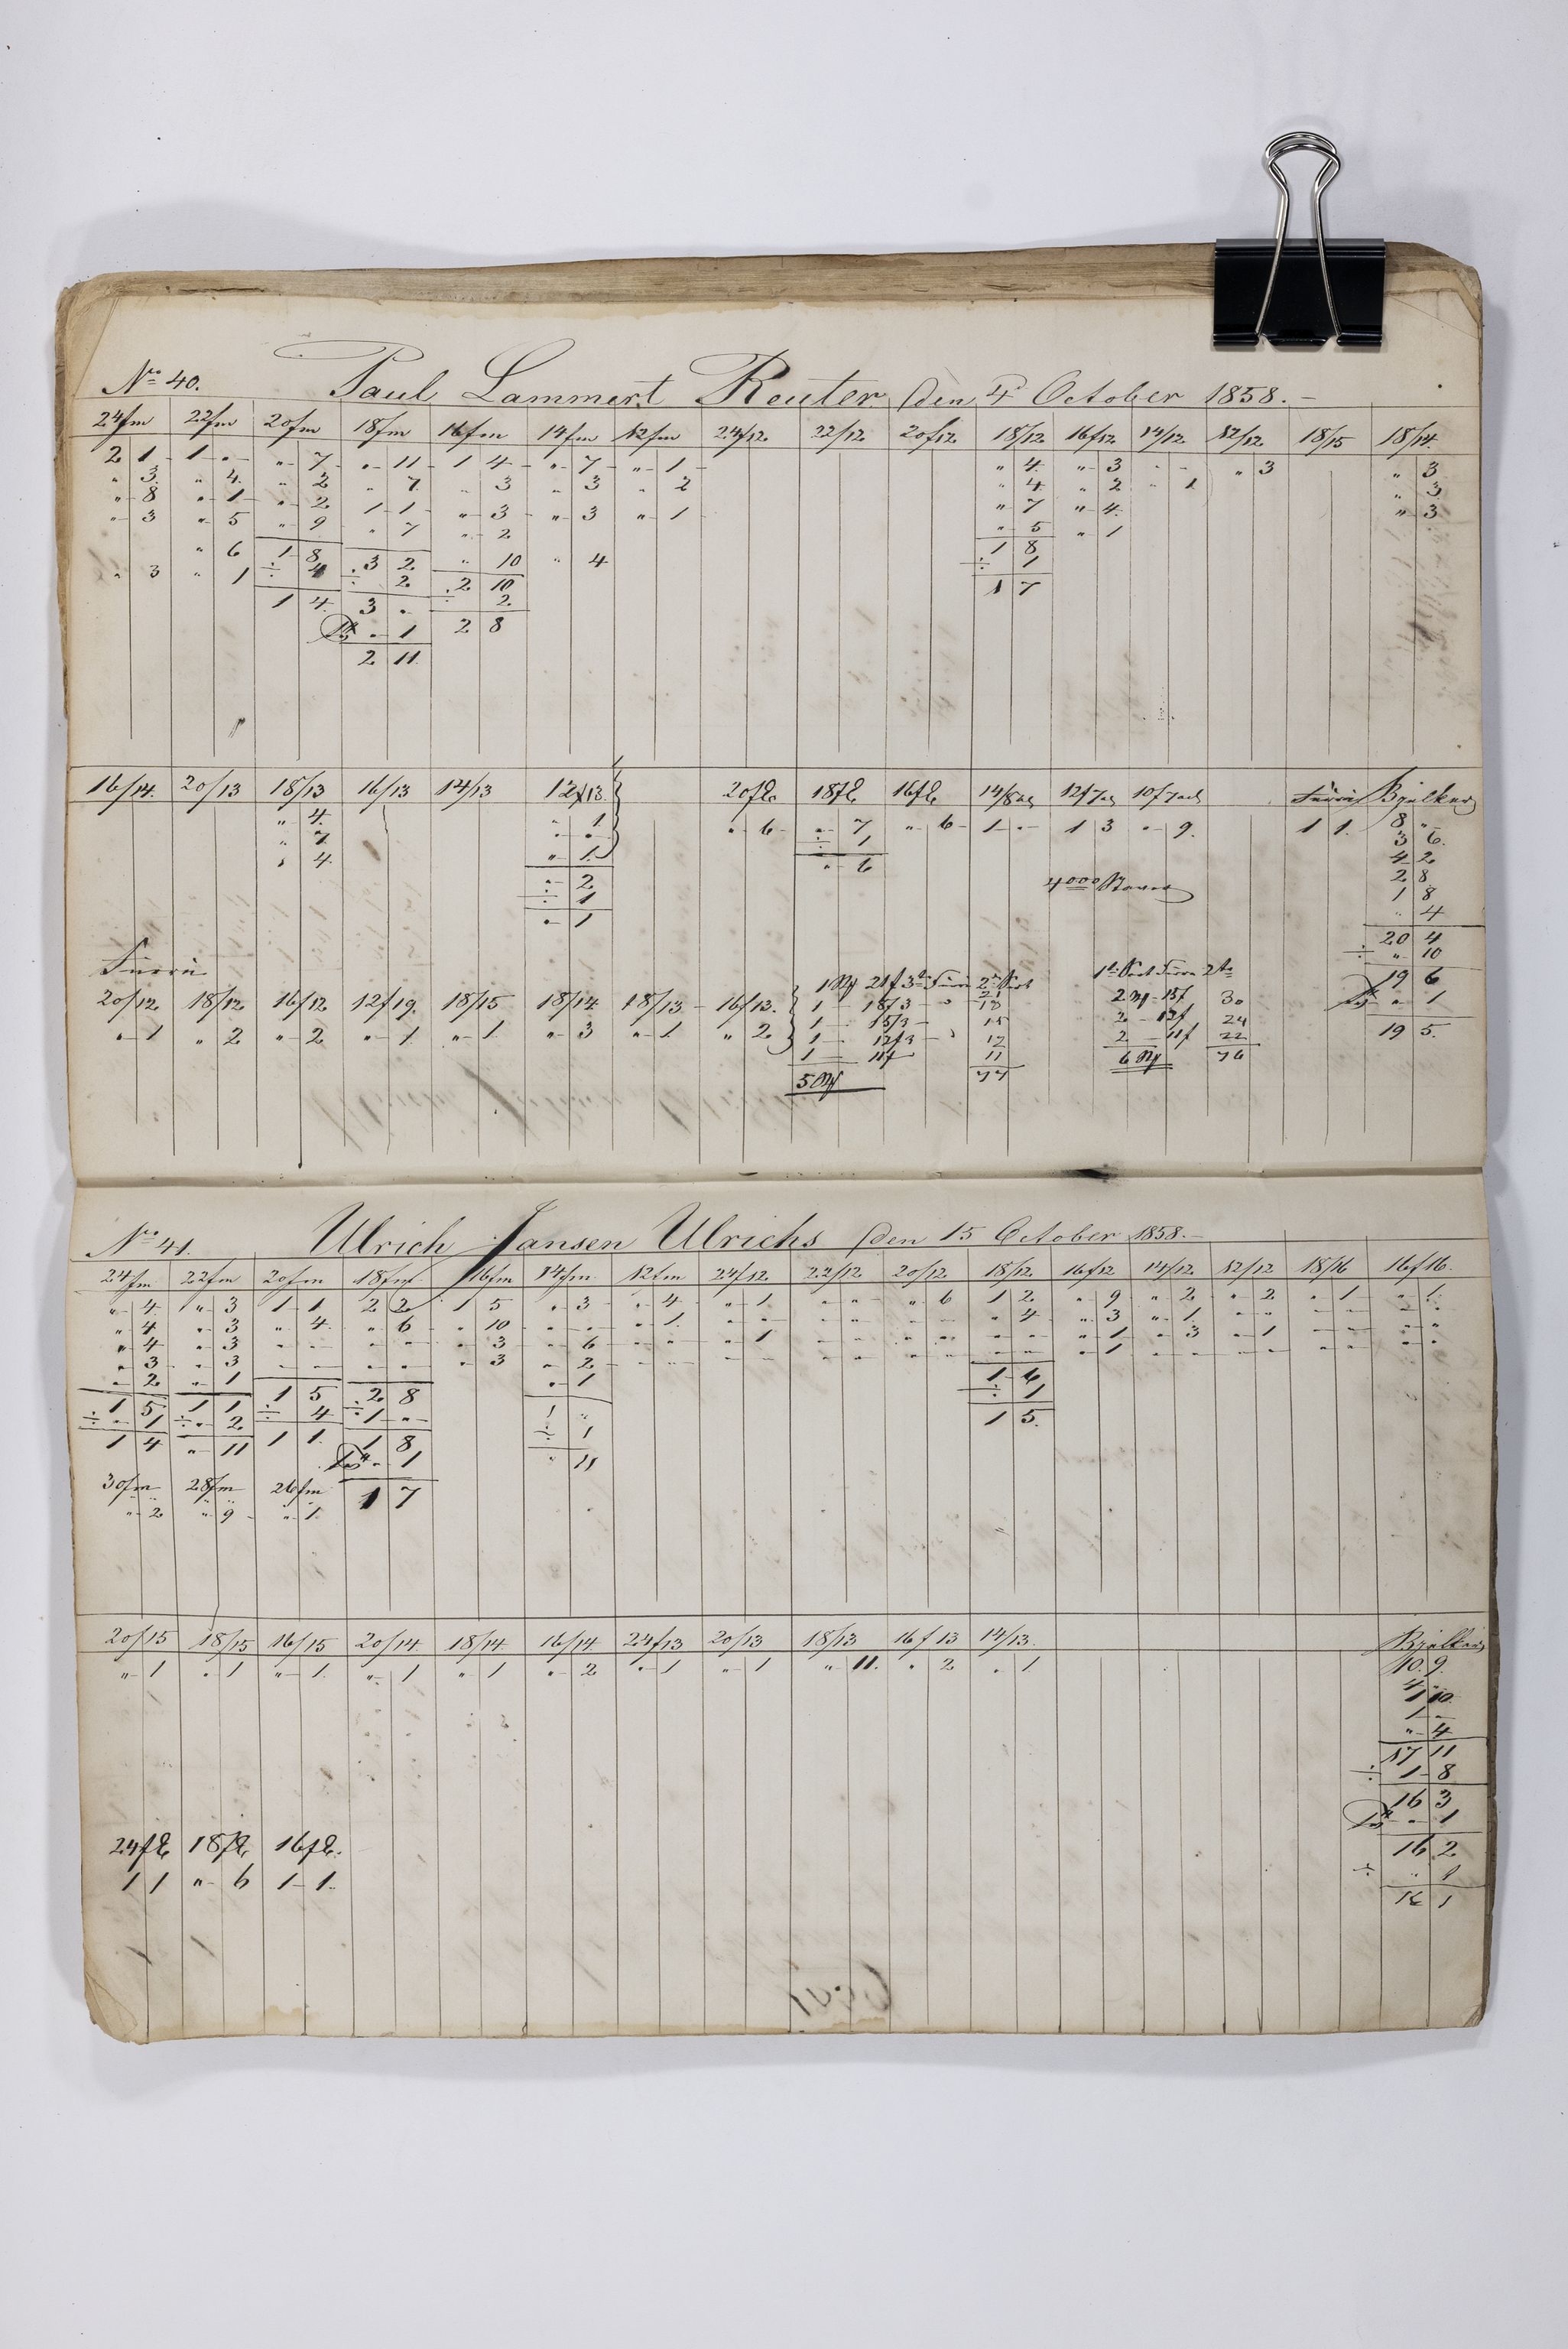 No 40. Paul Lammert Reuter, den 4 October 1858.-
24fm 22fm 20fm 18fm 16fm 14fm 12fm 24/12. 22/12 20f12. 18/12. 16f12 14/12 12/12. 18/15 18/14.
2 1 - 1 „ - „ 7 - „ 11 - 1 4 - „ 7 - „ 1 - „ 4. „ 3 „ - „ 3 „ 3
„ 3. „ 4. „ 2 „ 7. „ 3 „ 3 „ 2 „ 4. „ 2 „ 1. „ 3
„ 8 „ 1 - „ 2 1 1 - „ 3 - „ 3 „ 1 - „ 7 „ 4. „ 3
„ 3 „ 5 „ 9 „ 7 „ 2 „ 5 „ 1
„ 6 1 8 3 2 „ 10 „ 4 1 8
„ 3 „ 1 ÷ 4 ÷ 2. 2 10 ÷ 1
1 4. 3 „ ÷ 2. 1 7
„ 1 2 8
2 11.
16/14. 20/13 18/13 16/13 14/13 12/13. 20f 18f 16f 14/8 12f7 10f7 Furru Bjelker
„ 4. „ 1 „ 6 - „ 7 „ 6 - 1 „ - 1 3 „ 9. 1 1. 8 „
„ 7. „ „ ÷ 1 3 6.
„ 4. „ 1. „ 6 4 2
÷ 2 4000 2 8
÷ 1 1 8
„ 1 „ 4
20 4
Furru ÷ „ 10
1 21f 3 Furru 2 21 1 Furru 2 19 6
20/12. 18/12 16/12 12f19. 18/15 18/14 18/13 - 16f13. 1 - 18/3 - „ 18 2 - 15f 30 „ 1
„ 1 „ 2 „ 2 „ 1 „ 1 „ 3 „ 1 „ 2. 1 - 15/3 - 15 2 - 12f 24 19 5.
1 - 12f3 - „ 12 2 - 11f 22
1 - 11f 11 6 76
5 77
No 41. Ulrich Jansen Ulrichs den 15 October 1858.-
24fm 22fm 20fm 18fm 16fm 14fm 12fm 24/12 22/12 20/12 18/12. 16f12 14/12 12/12 18/16 16f16.
„ 4 „ 3 1 1. 2 2 1 5 „ 3 - „ 4. „ 1 „ „ „ 6 1 2. „ 9 „ 2. „ 2 „ 1 „ 1.
„ 4 „ 3 „ 4. „ 6 „ 10 „ „ „ 1. „ „ „ „ „ „ „ 4 „ 3 „ 1. „ „
„ 4 „ 3 „ „ „ „ „ 3 „ 6 „ „ „ 1 „ „ „ „ „ „ „ 1 „ 3 „ 1
„ 3 „ 3 „ 3 „ 2. 1 6 „ 1
„ 2. „ 1 1 5 2 8 „ 1 ÷ 1
1 5 1 1 ÷ 4 ÷ 1 „ 1 „ 1 5.
÷ „ 1 ÷ „ 2 1 1. 1 8 ÷ 1
1 4 „ 11 „ 1 „ 11
30fm 28fm 26fm 1 7
„ 2 „ 9 - „ 1.
20/15 18/15 16/15 20/14. 18/14 16/14 24f13 20/13 18/13 16f13 14/13. Bjelker
„ 1 „ 1 „ 1. „ 1 „ 1 „ 2 „ 1 „ 1 „ 11. „ 2 „ 1 10. 9.
4 „
1 10
1 -
„ 4
17 11
÷ 1 8
16 3
„ 1
24f 18f 16f 16 2
1 1 „ 6 1 1. ÷ „ 1
16 1